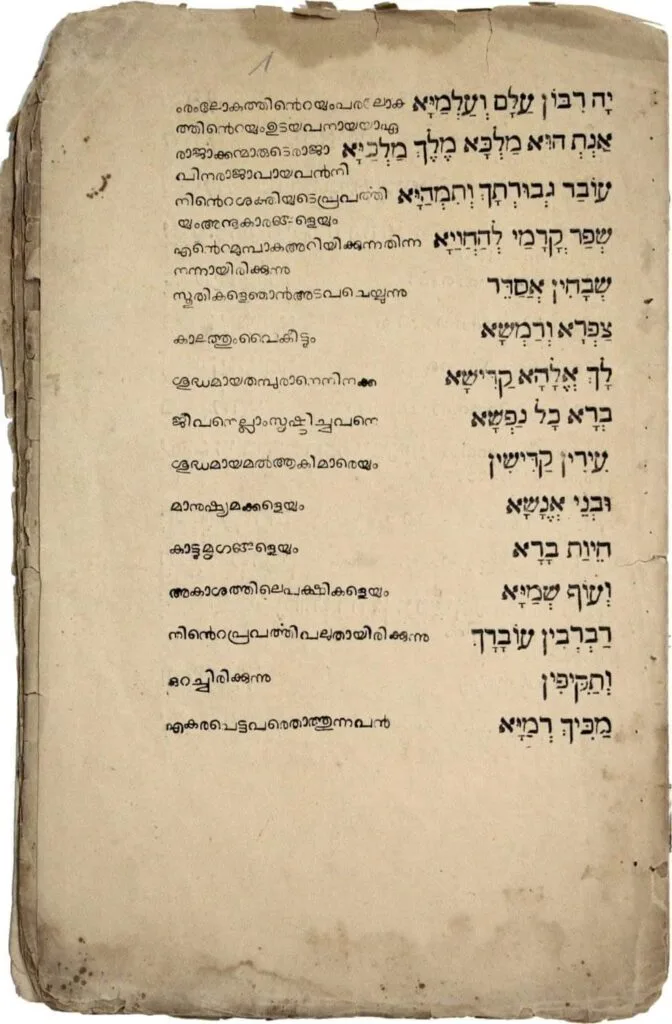 1
יָהּ רִבּוֹן עָלַם וְעָלְמַיָּא
ൟലോകത്തിന്റെയുംപരലോക
ത്തിന്റെയുംഉടയവനായയാഏ
אַנְתְּ הוּא מַלְכָּא מֶלֶךְ מַלְכַיָּא
രാജാക്കന്മാരുടെരാജാ
വിനരാജാവായവൻനി
עוֹבַר גְּבוּרְתָּךְ וְתִמְהַיָּא
നിന്റെശക്തിയുടെപ്രവൎത്തി
യുംഅനുകാരങ്ങളെയും
שְׁפַר קֳדָמַי לְהַחֲוַיָּא
എന്റെമുമ്പാകഅറിയിക്കുന്നതിന്ന
നന്നായിരിക്കുന്നു
שְׁבָחִין אֲסַדֵּר
സ്തുതികളെഞാൻഅടവചെയ്യുന്നു
צַפְרָא וְרַמְשָׁא
കാലത്തുംവൈകീട്ടും
לָךְ אֱלָהָא קַדִּישָׁא
ശുദ്ധമായതമ്പുരാനെനിനക്ക
בְּרָא כָל נַפְשָׁא
ജീവനെല്ലാംസൃഷ്ടിച്ചവനെ
עִירִין קַדִּישִׁין
ശുദ്ധമായമൽആകിമാരെയും
וּבְנֵי אֱנָשָׁא
മാനുഷ്യമക്കളെയും
חֵיוַת בָּרָא
കാട്ടുമൃഗങ്ങളെയും
וְעוֹף שְׁמַיָּא
അകാശത്തിലെപക്ഷികളെയും
רַבְרְבִין עוֹבָדָךְ
നിന്റെപ്രവൎത്തിപലുതായിരിക്കുന്നു
וְתַקִּיפִין
ഒറച്ചിരിക്കുന്നു
מַכִּיךְ רְמַיָּא
എകരപെട്ടവരെതാത്തുന്നവൻ